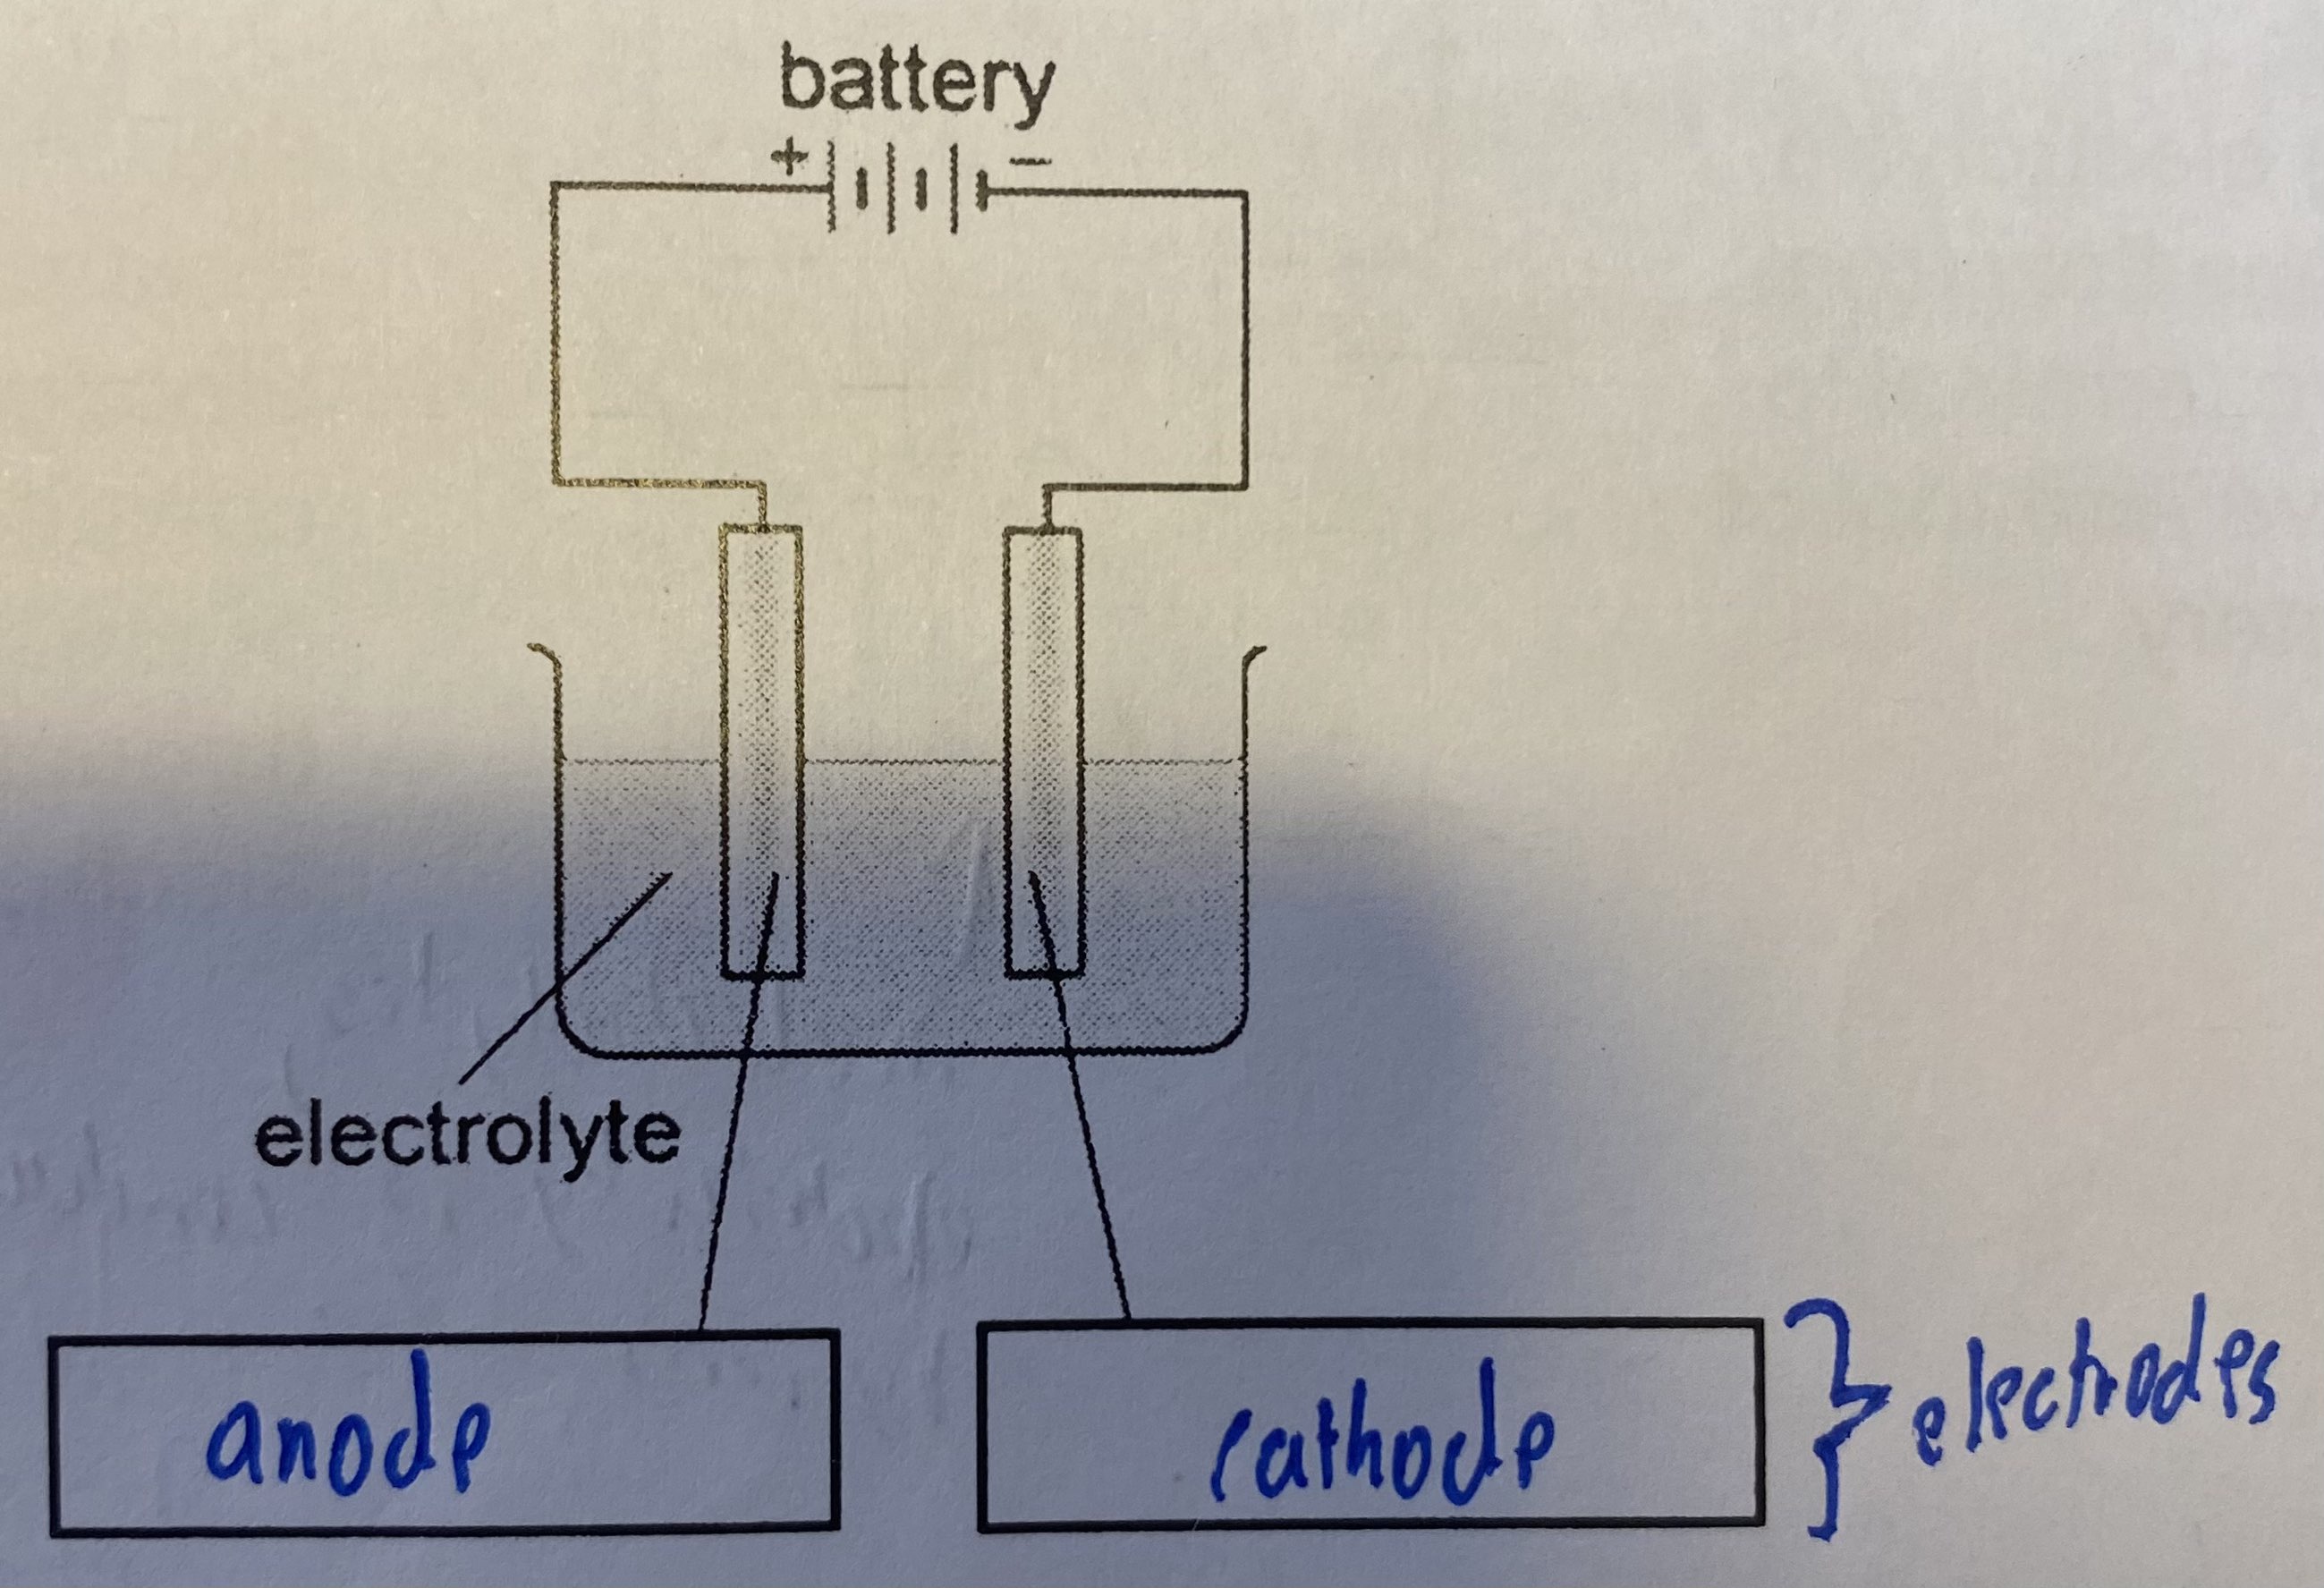 battery
+ −
electrolyte
anode
cathode
electrodes